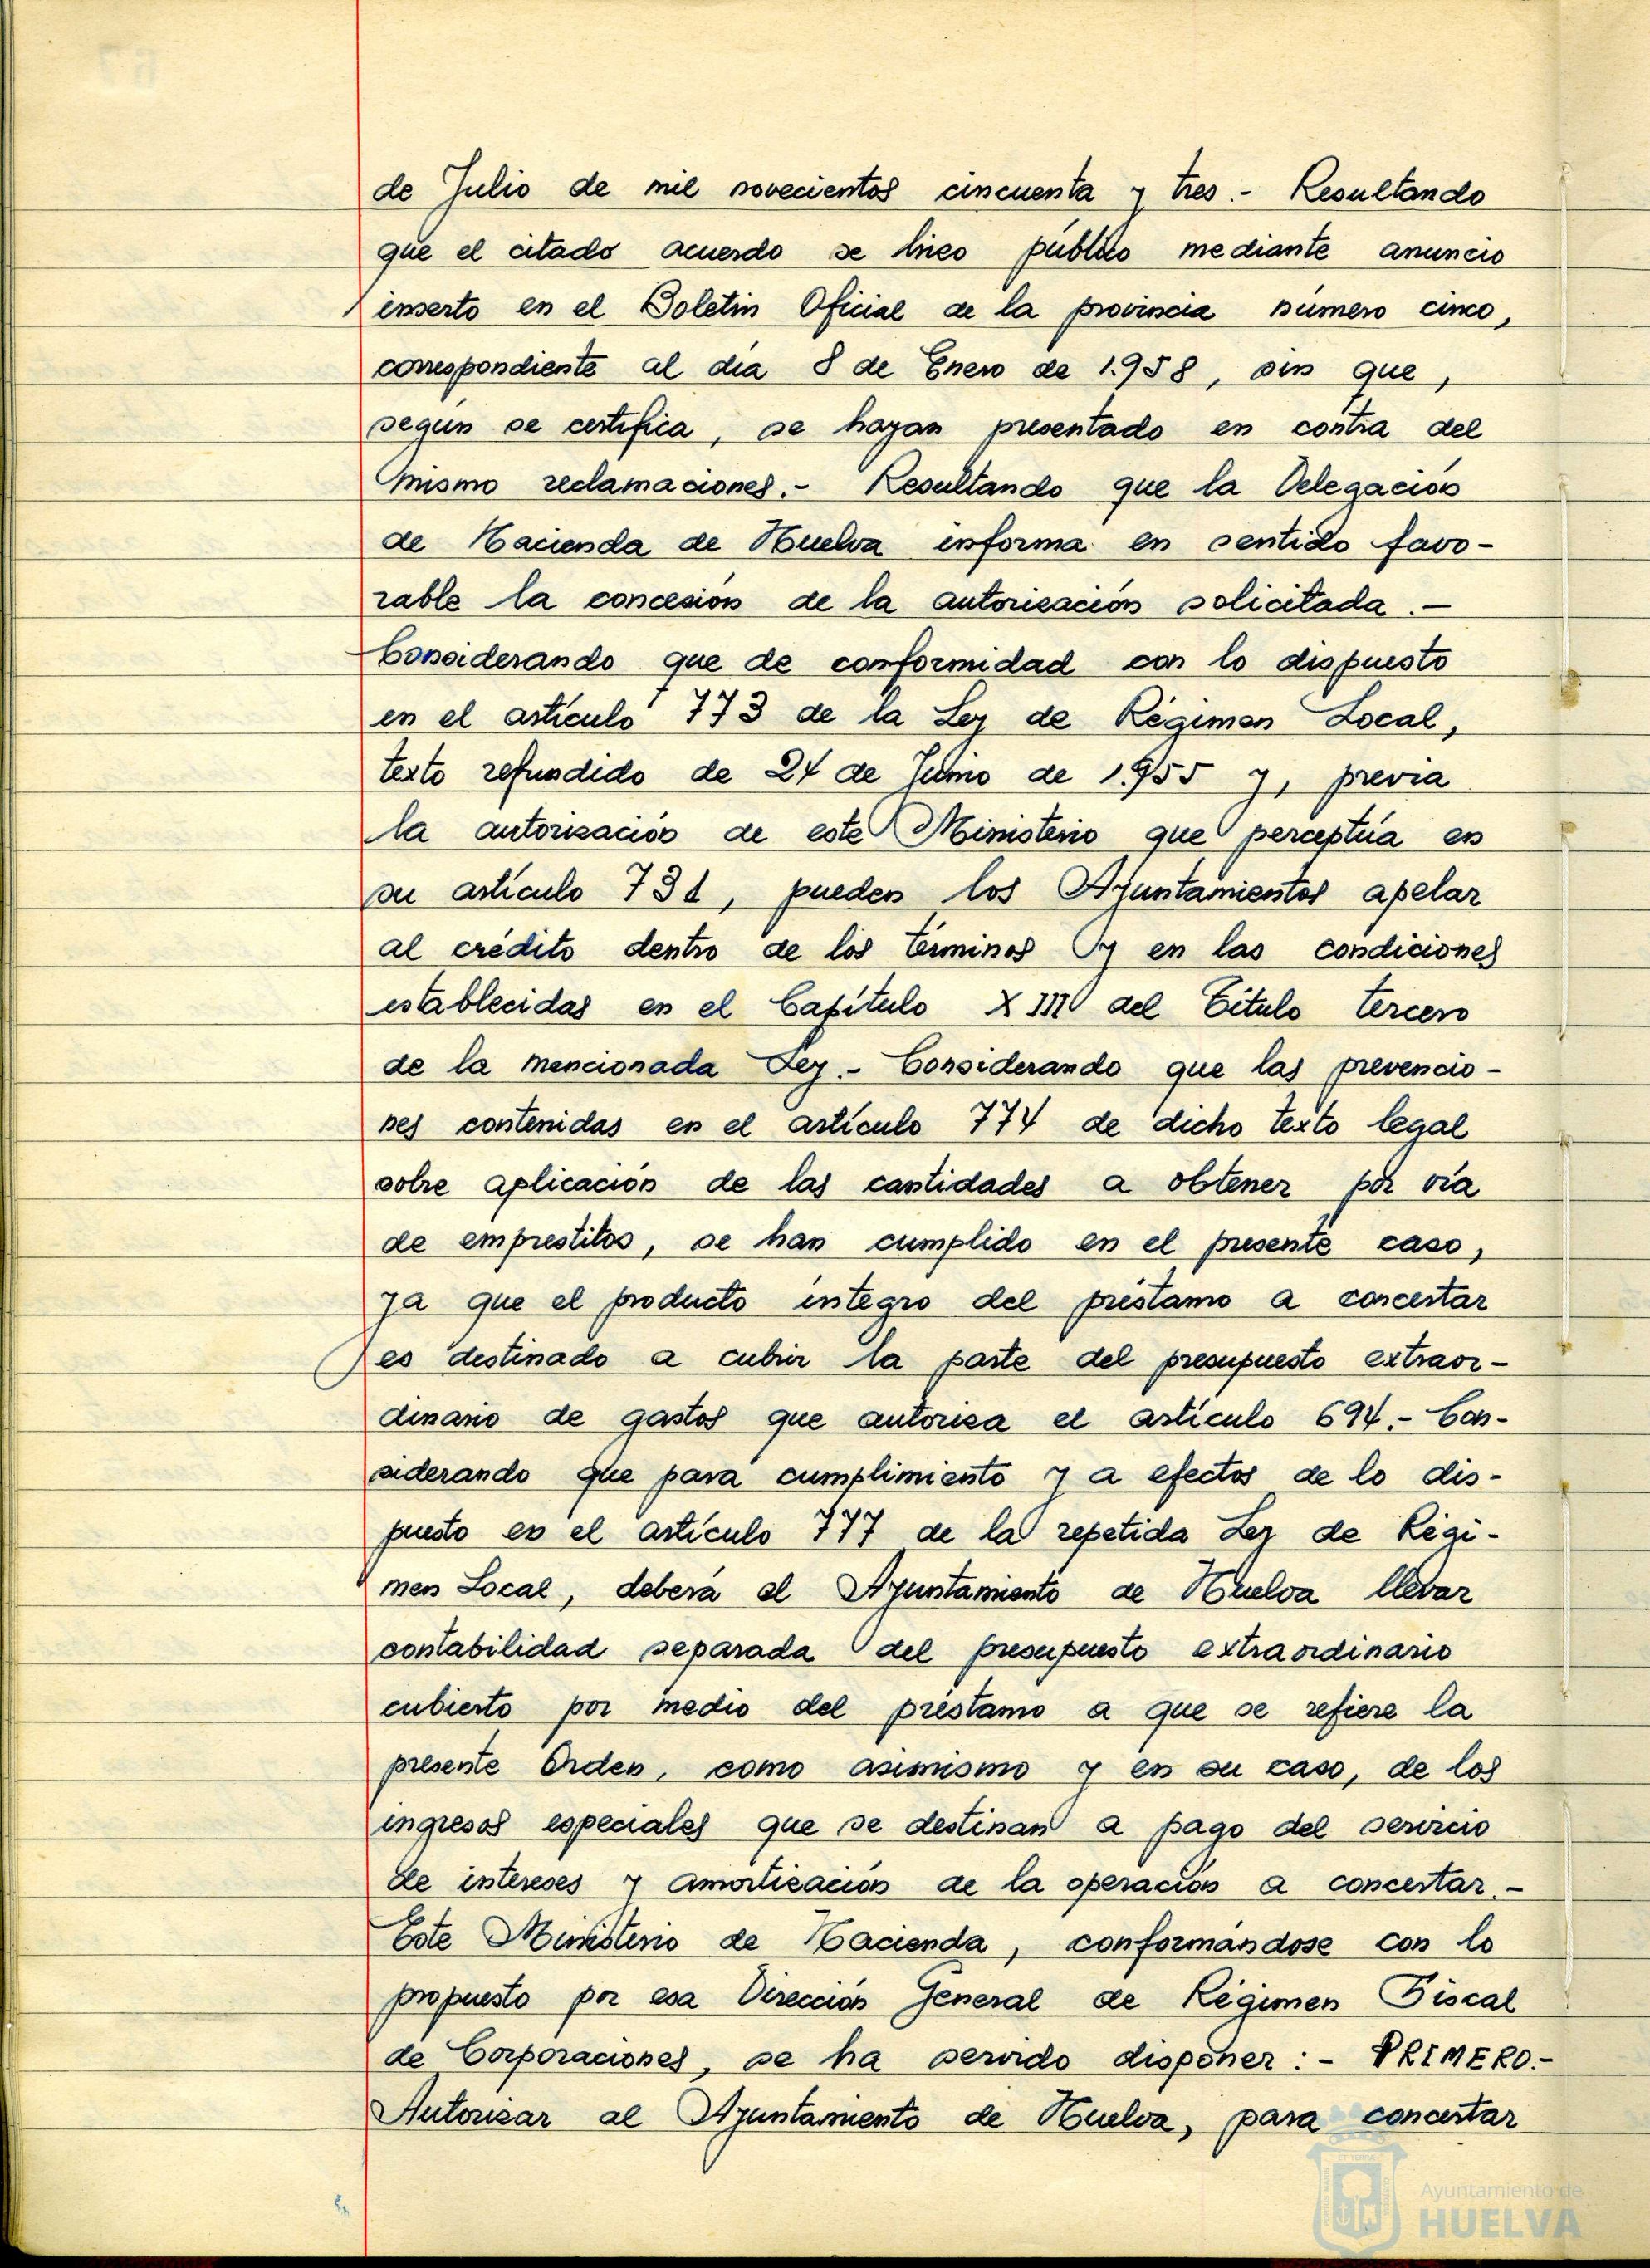 de Julio de mil novecientos cincuenta y tres.- Resultando
que el citado acuerdo se hizo público mediante anuncio
inserto en el Boletin Oficial de la provincia número cinco,
correspondiente al día 8 de Enero de 1.958, sin que,
según se certifica, se hayan presentado en contra del
mismo reclamaciones.- Resultando que la Delegación
de Hacienda de Huelva informa en sentido favo-
rable la concesión de la autorización solicitada.-
Considerando que de conformidad con lo dispuesto
en el artículo 773 de la Ley de Régimen Local,
texto refundido de 24 de Junio de 1.955 y, previa
la autorización de este Ministerio que perceptúa en
su artículo 781, pueden los Ayuntamientos apelar
al crédito dentro de los términos y en las condiciones
establecidas en el Capítulo XIII del Título tercero
de la mencionada Ley.- Considerando que las prevencio-
nes contenidas en el artículo 774 de dicho texto legal
sobre aplicación de las cantidades a obtener por vía
de emprestitos, se han cumplido en el presente caso,
ya que el producto integro del préstamo a concertar
es destinado a cubrir la parte del presupuesto extraor-
dinario de gastos que autoriza el artículo 694.- Con-
siderando que para cumplimiento y a efectos de lo dis-
puesto en el artículo 777 de la repetida Ley de Régi-
men Local, deberá el Ayuntamiento de Huelva llevar
contabilidad separada del presupuesto extraordinario
cubierto por medio del préstamo a que se refiere la
presente Orden, como asimismo y en su caso, de los
ingresos especiales que se destinan a pago del servicio
de intereses y amortización de la operación a concertar.-
Este Ministerio de Hacienda, conformándose con lo
propuesto por esa Dirección General de Régimen Fiscal
de Corporaciones, se ha servido disponer:- PRIMERO.-
Autorizar al Ayuntamiento de Huelva, para concertar
Ayuntamiento de
HUELVA